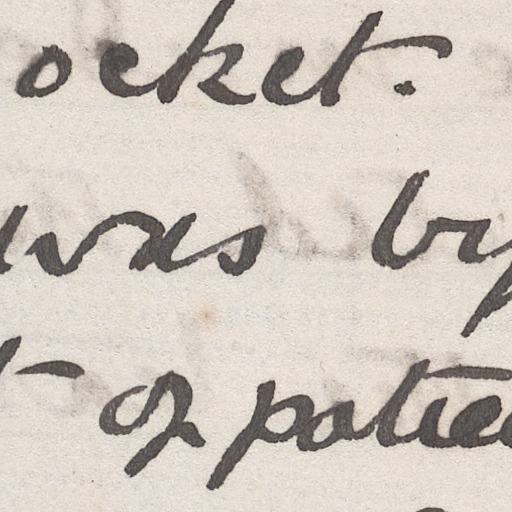 ocket.
was by
t of patie